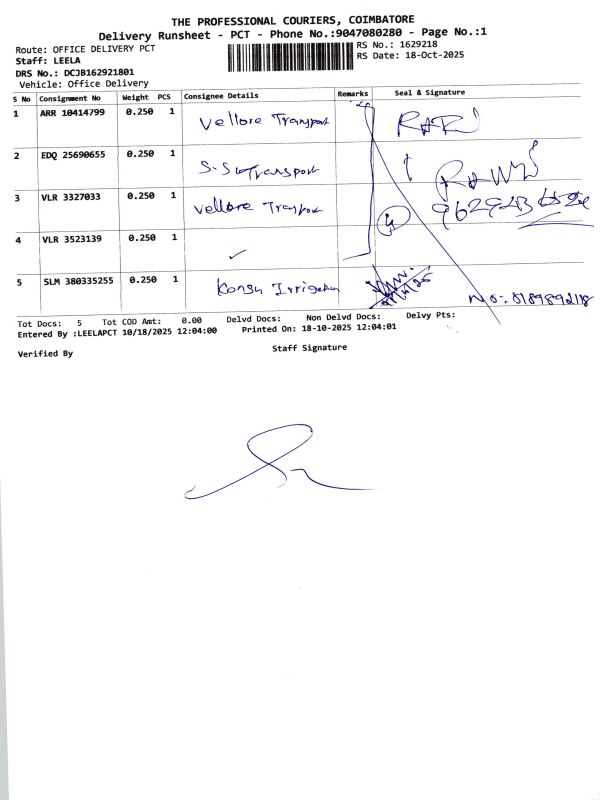 THE PROFESSIONAL COURIERS, COIMBATORE
Delivery Runsheet - PCT - Phone No.:9047080280 - Page No.:1
Route: OFFICE DELIVERY PCT
RS No.: 1629218
Staff: LEELA
RS Date: 18-Oct-2025
DRS No.: DCJB162921801
Vehicle: Office Delivery
S No Consignment No Weight PCS Consignee Details Remarks Seal & Signature
1 ARR 10414799 0.250 1 Vellore Transport
2 EDQ 25690655 0.250 1 S.S Transport
3 VLR 3327033 0.250 1 Vellore Tranport
4 VLR 3523139 0.250 1 ✓
5 SLM 380335255 0.250 1
No:- 8189892118
Tot Docs: 5 Tot COD Amt: 0.00 Delvd Docs: Non Delvd Docs: Delvy Pts:
Entered By :LEELAPCT 10/18/2025 12:04:00 Printed On: 18-10-2025 12:04:01
Verified By
Staff Signature